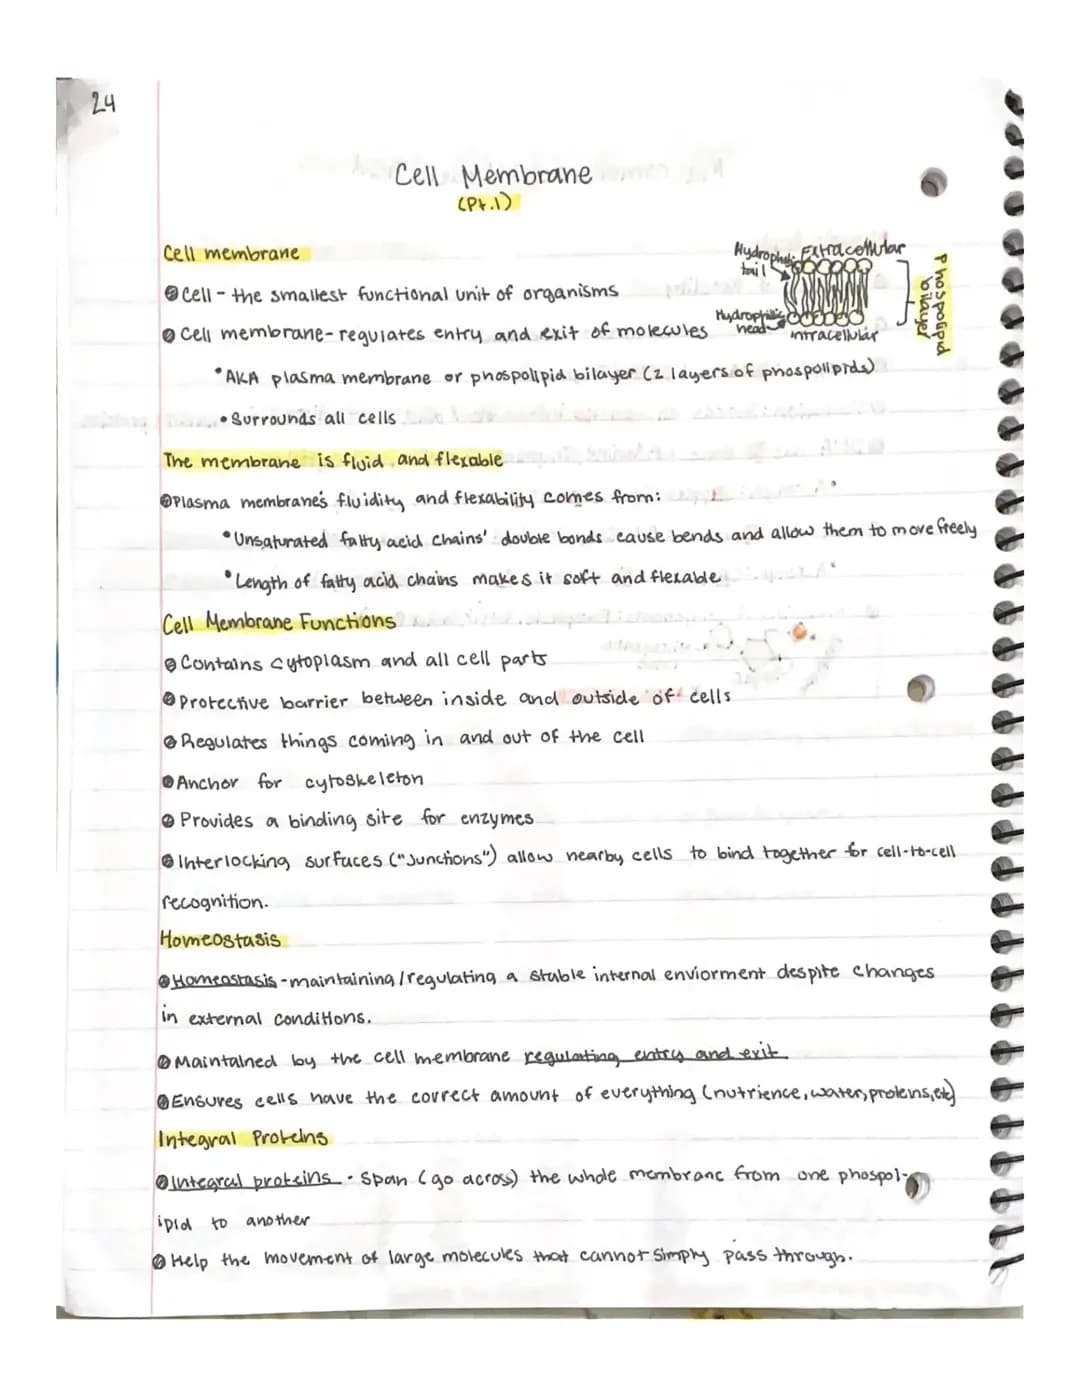 24
Cell Membrane
(Pt.1)
Cell membrane
Hydrophobic Extracellular
tail
Cell - the smallest functional unit of organisms
Hydrophilic
head
intracellular
Phospolipid
bilayer
Cell membrane- regulates entry and exit of molecules
• AKA plasma membrane or phospolipid bilayer (2 layers of phospolipids)
• Surrounds all cells
The membrane is fluid and flexable
Plasma membrane's fluidity and flexability comes from:
• Unsaturated fatty acid chains' double bonds cause bends and allow them to move freely
• Length of fatty acid chains makes it soft and flexable
Cell Membrane Functions
Contains cytoplasm and all cell parts
Protective barrier between inside and outside of cells
Regulates things coming in and out of the cell
Anchor for cytoskeleton
Provides a binding site for enzymes
Interlocking surfaces ("Junctions") allow nearby cells to bind together for cell-to-cell
recognition.
Homeostasis
Homeostasis - maintaining/regulating a stable internal enviorment despite changes
in external conditions.
Maintained by the cell membrane regulating entry and exit
Ensures cells have the correct amount of everything (nutrience, water, proteins, etc)
Integral Proteins
Integral proteins - Span (go across) the whole membrane from one phospol-
ipid to another
Help the movement of large molecules that cannot simply pass through.